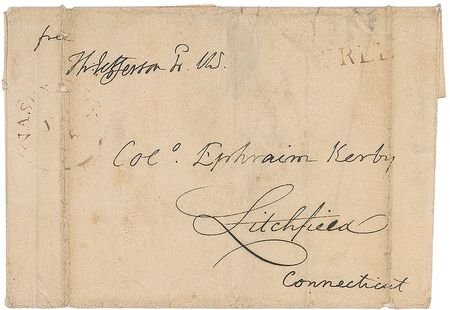 free
Th: Jefferson Pr. US.
FREE
WAS
Colº. Ephraim Kerby
Litchfield
Connecticut